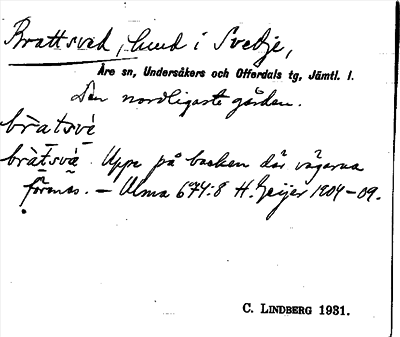 Brattsved, hund i Svedje,
Åre sn, Undersåkers och Offerdals tg, Jämtl. l.
Den nordligaste gården.
bràtsve
bràtsvá. Uppe på backen där vägarna
förenas. – Ulma 674:8 H. Geijer 1904–09.
C. LINDBERG 1931.